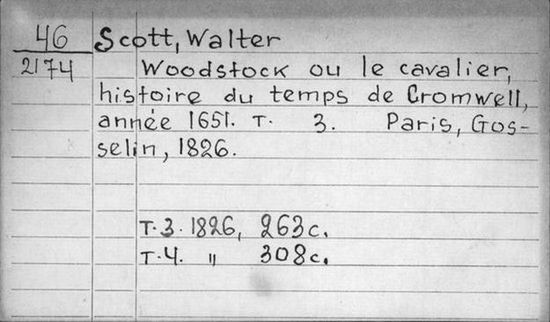 46 Scott, Walter
2174 Woodstock ou le cavalier,
histoire du temps de Cromwell,
année 1651. T. 3. Paris, Gos-
selin, 1826.
T. 3. 1826, 263c.
T. 4. " 308c.